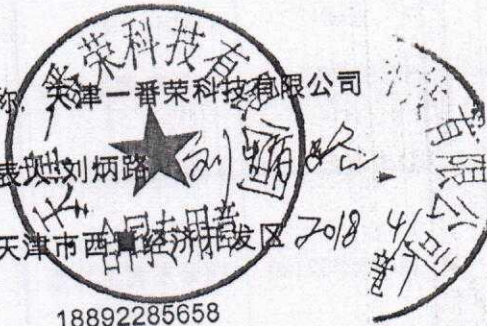 称 天津一番荣科技有限公司
表人 刘炳路
天津市西青经济开发区 2018 4/
18892285658
天津一番荣科技有限公司
合同专用章
有限公司